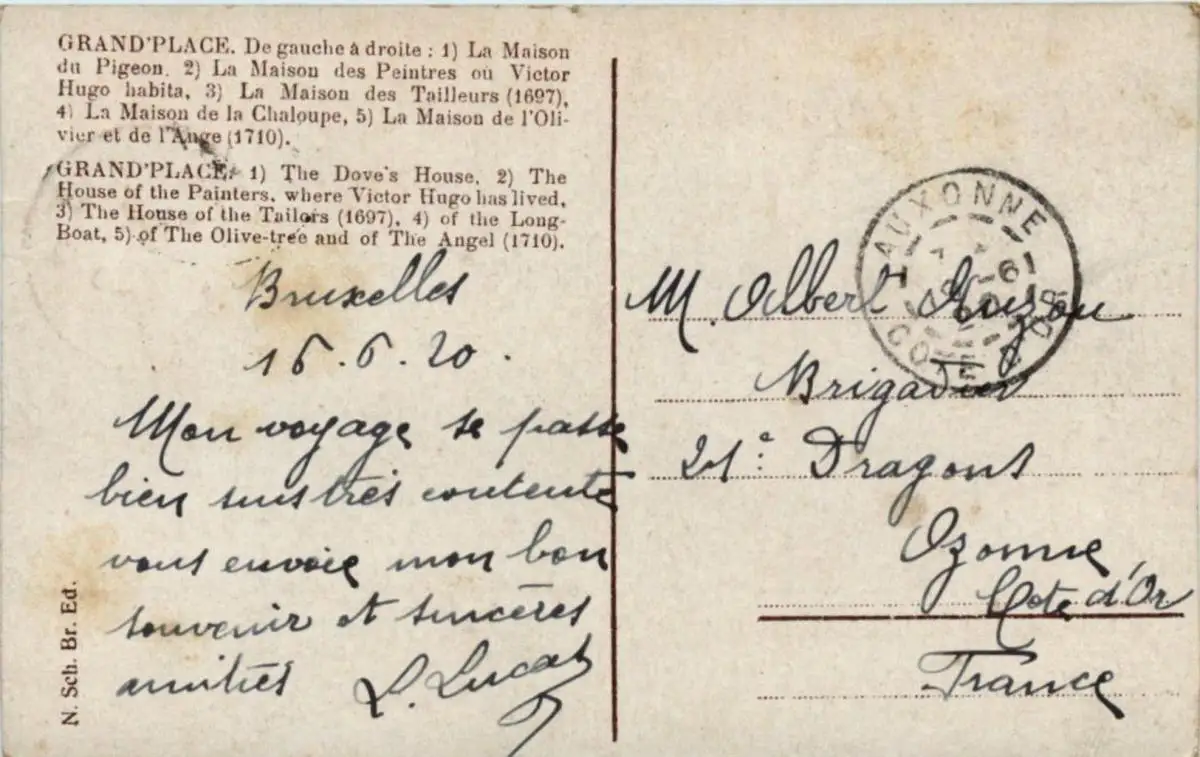 GRAND'PLACE. De gauche à droite : 1) La Maison
du Pigeon. 2) La Maison des Peintres où Victor
Hugo habita, 3) La Maison des Tailleurs (1697),
4) La Maison de la Chaloupe, 5) La Maison de l'Oli-
vier et de l'Ange (1710).
GRAND'PLACE: 1) The Dove's House, 2) The
House of the Painters, where Victor Hugo has lived,
3) The House of the Tailors (1697), 4) of the Long-
Boat, 5) of The Olive-tree and of The Angel (1710).
Bruxelles
16.6.20.
Mon voyage se passe
bien suis très contente
vous envoie mon bon
souvenir et sincères
amitiés L. Lucas
N. Sch. Br. Ed.
AUXONNE
COTE D'OR
M. Albert
Brigadier
21e: Dragons
Ozonne
Cote d'Or
France